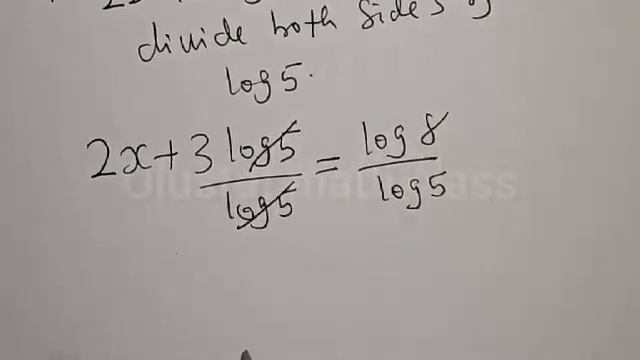 divide both sides of
log 5.
2x + 3 log 5 / log 5 = log 8 / log 5